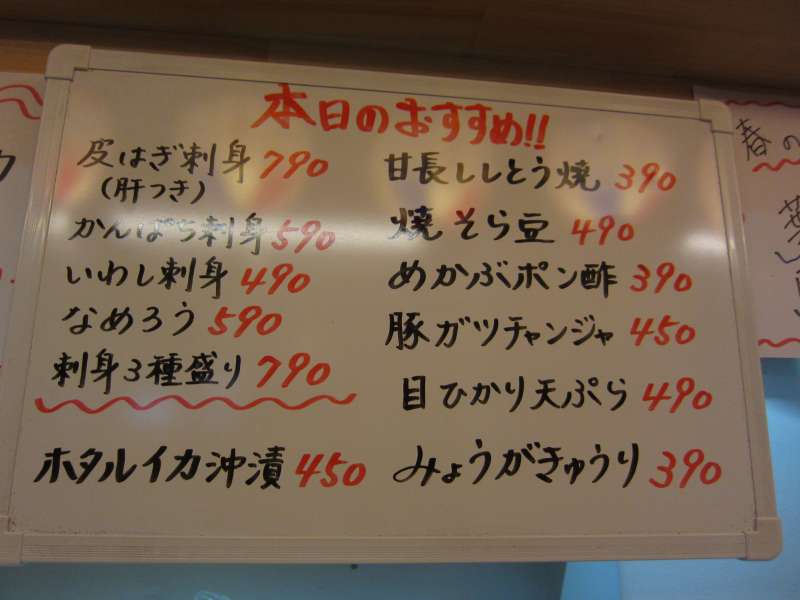 本日のおすすめ!!
皮はぎ刺身 790
(肝つき)
かんぱち刺身 590
いわし刺身 490
なめろう 590
刺身3種盛り 790
ホタルイカ沖漬 450
甘長ししとう焼 390
焼そら豆 490
めかぶポン酢 390
豚ガツチャンジャ 450
目ひかり天ぷら 490
みょうがきゅうり 390
春の